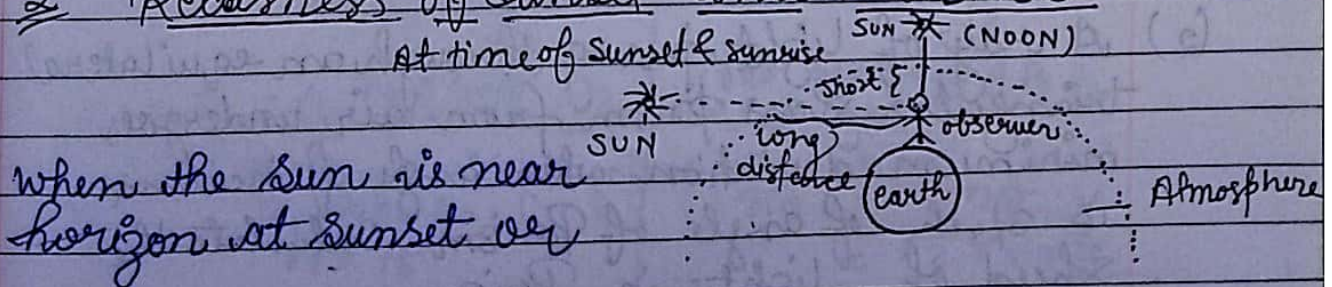 SUN (NOON)
At time of Sunset & sunrise
short
SUN
long
distance
observer
earth
Atmosphere
when the sun is near
horizon at sunset or